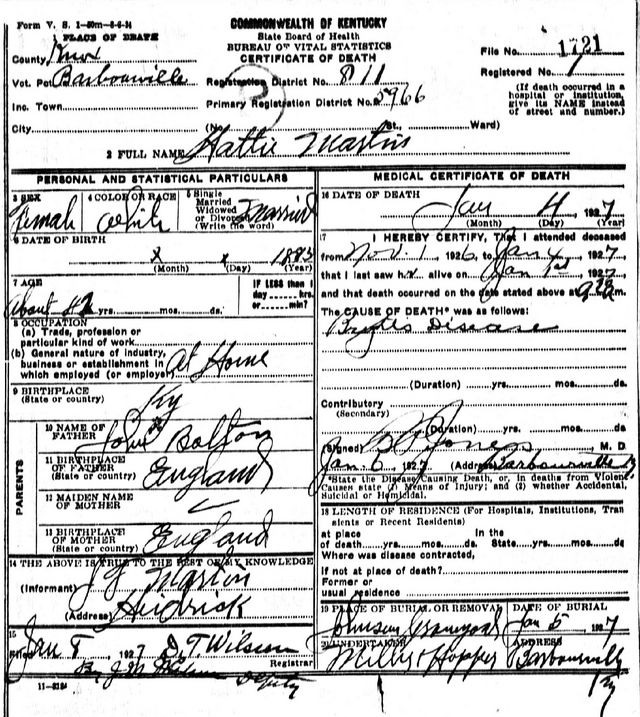 Form V. S. 1-50m-8-6-14
COMMONWEALTH OF KENTUCKY
State Board of Health
BUREAU OF VITAL STATISTICS
CERTIFICATE OF DEATH
1 PLACE OF DEATH
County Knox
File No. 1721
Vot. Pct Barbourville
Registration District No. 811
Registered No. 1
Inc. Town
Primary Registration District No. 5966
(If death occurred in a hospital or institution, give its NAME instead of street and number.)
City (No. St. Ward)
2 FULL NAME Hattie Martin
PERSONAL AND STATISTICAL PARTICULARS
3 SEX Female
4 COLOR OR RACE White
5 Single Married Widowed or Divorced (Write the word) Married
6 DATE OF BIRTH x x 1883
(Month) (Day) (Year)
7 AGE About 42 yrs. mos. ds.
IF LESS than 1 day hrs. or min?
8 OCCUPATION
(a) Trade, profession or particular kind of work
(b) General nature of industry, business or establishment in which employed (or employer) At Home
9 BIRTHPLACE (State or country) Ky
PARENTS
10 NAME OF FATHER John Bolton
11 BIRTHPLACE OF FATHER (State or country) England
12 MAIDEN NAME OF MOTHER
13 BIRTHPLACE OF MOTHER (State or country) England
14 THE ABOVE IS TRUE TO THE BEST OF MY KNOWLEDGE
(Informant) J F Martin
(Address)
15
Filed Jan 8 1927 D. T. Wilson
Registrar
By J. M. Deputy
11-3184
MEDICAL CERTIFICATE OF DEATH
16 DATE OF DEATH Jan 4 1927
(Month) (Day) (Year)
17 I HEREBY CERTIFY, That I attended deceased
from Nov. 1 1926 to Jan 4 1927
that I last saw h alive on Jan 1st 1927
and that death occurred on the date stated above at m.
The CAUSE OF DEATH* was as follows:
Brights Disease
(Duration) yrs. mos. ds.
Contributory
(Secondary)
(Duration) yrs. mos. ds.
(Signed) Jones M. D.
Jan. 6 1927 (Address) Barbourville Ky
*State the Disease Causing Death, or, in deaths from Violent Causes state (1) Means of Injury; and (2) whether Accidental, Suicidal or Homicidal.
18 LENGTH OF RESIDENCE (For Hospitals, Institutions, Transients or Recent Residents)
at place of death yrs. mos. ds. In the State yrs. mos. ds.
Where was disease contracted,
If not at place of death?
Former or usual residence
19 PLACE OF BURIAL OR REMOVAL Johnson Graveyard
DATE OF BURIAL Jan 5 1927
20 UNDERTAKER Miller & Hopper
ADDRESS Barbourville Ky